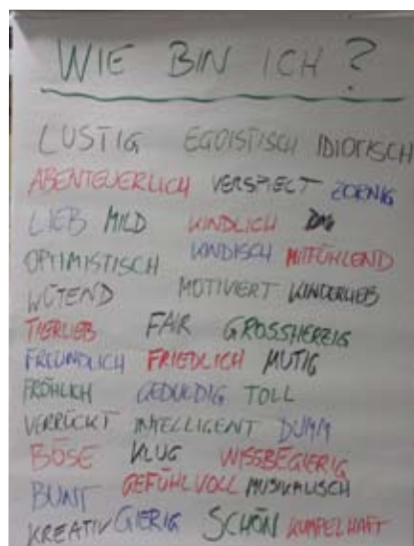 WIE BIN ICH?
LUSTIG EGOISTISCH IDIOTISCH
ABENTEUERLICH VERSPIELT ZORNIG
LIEB MILD KINDLICH
OPTIMISTISCH KINDISCH MITFÜHLEND
WÜTEND MOTIVIERT KINDERLIEB
TIERLIEB FAIR GROSSHERZIG
FREUNDLICH FRIEDLICH MUTIG
FRÖHLICH GEDULDIG TOLL
VERRÜCKT INTELLIGENT DUMM
BÖSE KLUG WISSBEGIERIG
BUNT GEFÜHLVOLL MUSIKALISCH
KREATIV GIERIG SCHÖN KUMPELHAFT